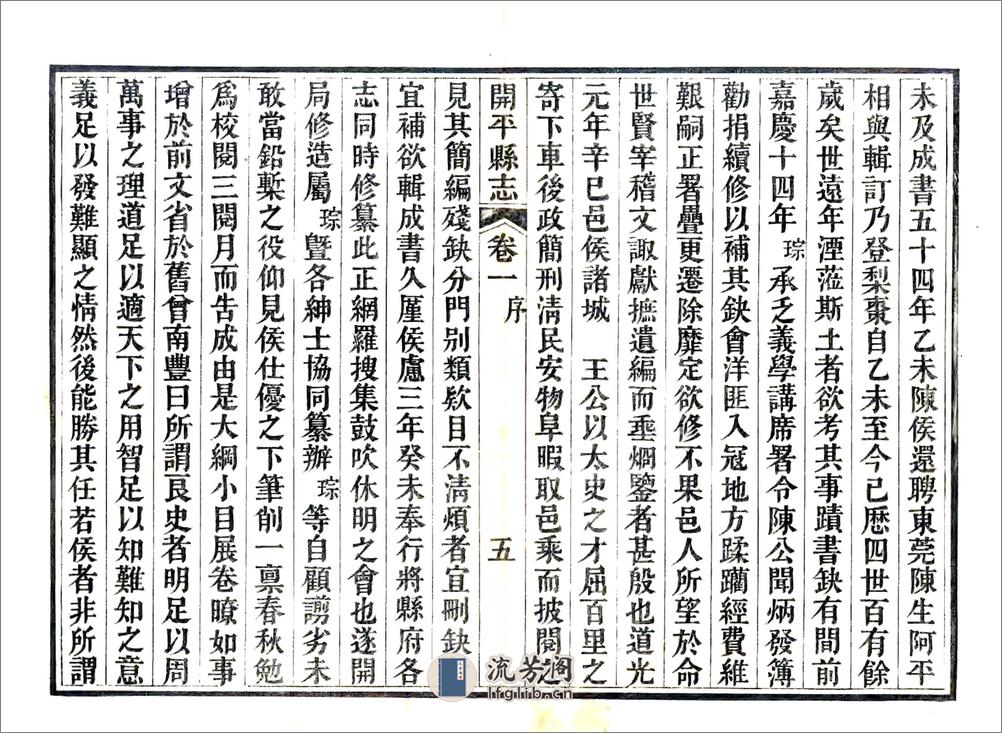 未及成書五十四年乙未陳侯還聘東莞陳生阿平
相與輯訂乃登梨棗自乙未至今已歷四世百有餘
歲矣世遠年湮蒞斯土者欲考其事蹟書缺有間前
嘉慶十四年琮承乏義學講席署令陳公聞炳發簿
勸捐續修以補其缺會洋匪入寇地方蹂躪經費維
艱嗣正署疊更遷除靡定欲修不果邑人所望於命
世賢宰稽文諏獻摭遺編而垂烱鑒者甚殷也道光
元年辛巳邑侯諸城　王公以太史之才屈百里之
寄下車後政簡刑清民安物阜暇取邑乘而披閱之
開平縣志　卷一　序　五
見其簡編殘缺分門別類欵目不清煩者宜刪缺
宜補欲輯成書久厪侯慮三年癸未奉行將縣府各
志同時修纂此正網羅搜集鼓吹休明之會也遂開
局修造屬琮曁各紳士協同纂辦琮等自顧謭劣未
敢當鉛槧之役仰見侯仕優之下筆削一禀春秋勉
爲校閱三閱月而告成由是大綱小目展卷瞭如事
增於前文省於舊曾南豐曰所謂良史者明足以周
萬事之理道足以適天下之用智足以知難知之意
義足以發難顯之情然後能勝其任若侯者非所謂
流芳阁
lfglib.cn